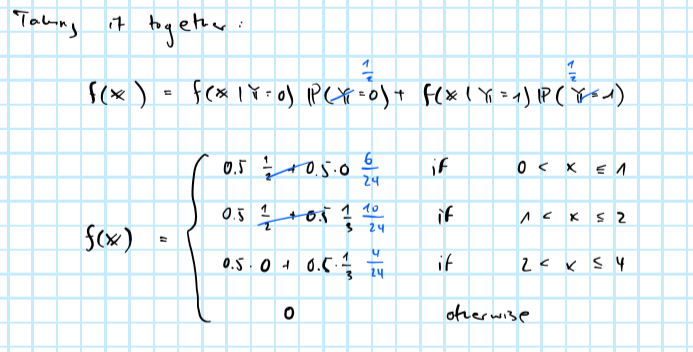 Taking it together:
1/2 1/2
f(x) = f(x|Y=0) ℙ(Y=0) + f(x|Y=1) ℙ(Y=1)
0.5 1/2 + 0.5·0 6/24 if 0 < x ≤ 1
f(x) = { 0.5 1/2 + 0.5 1/3 10/24 if 1 < x ≤ 2
0.5·0 + 0.5·1/3 4/24 if 2 < x ≤ 4
0 otherwise